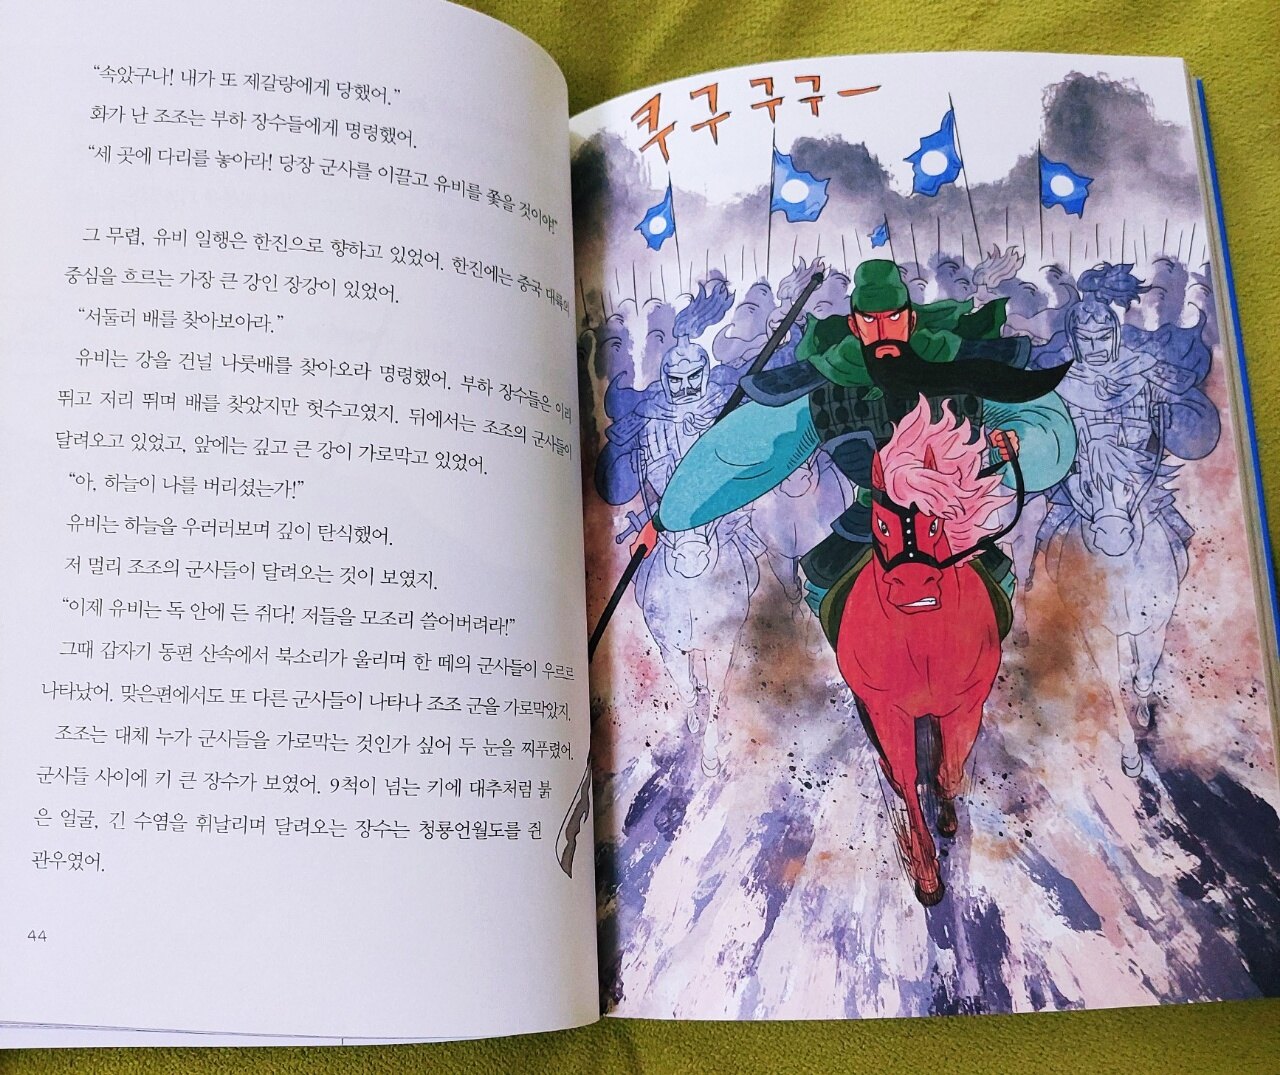 “속았구나! 내가 또 제갈량에게 당했어.”
화가 난 조조는 부하 장수들에게 명령했어.
“세 곳에 다리를 놓아라! 당장 군사를 이끌고 유비를 쫓을 것이야!”
그 무렵, 유비 일행은 한진으로 향하고 있었어. 한진에는 중국 대륙의
중심을 흐르는 가장 큰 강인 장강이 있었어.
“서둘러 배를 찾아보아라.”
유비는 강을 건널 나룻배를 찾아오라 명령했어. 부하 장수들은 이리
뛰고 저리 뛰며 배를 찾았지만 헛수고였지. 뒤에서는 조조의 군사들이
달려오고 있었고, 앞에는 깊고 큰 강이 가로막고 있었어.
“아, 하늘이 나를 버리셨는가!”
유비는 하늘을 우러러보며 깊이 탄식했어.
저 멀리 조조의 군사들이 달려오는 것이 보였지.
“이제 유비는 독 안에 든 쥐다! 저들을 모조리 쓸어버려라!”
그때 갑자기 동편 산속에서 북소리가 울리며 한 떼의 군사들이 우르르
나타났어. 맞은편에서도 또 다른 군사들이 나타나 조조 군을 가로막았지.
조조는 대체 누가 군사들을 가로막는 것인가 싶어 두 눈을 찌푸렸어.
군사들 사이에 키 큰 장수가 보였어. 9척이 넘는 키에 대추처럼 붉
은 얼굴, 긴 수염을 휘날리며 달려오는 장수는 청룡언월도를 쥔
관우였어.
44
쿠구구구ー